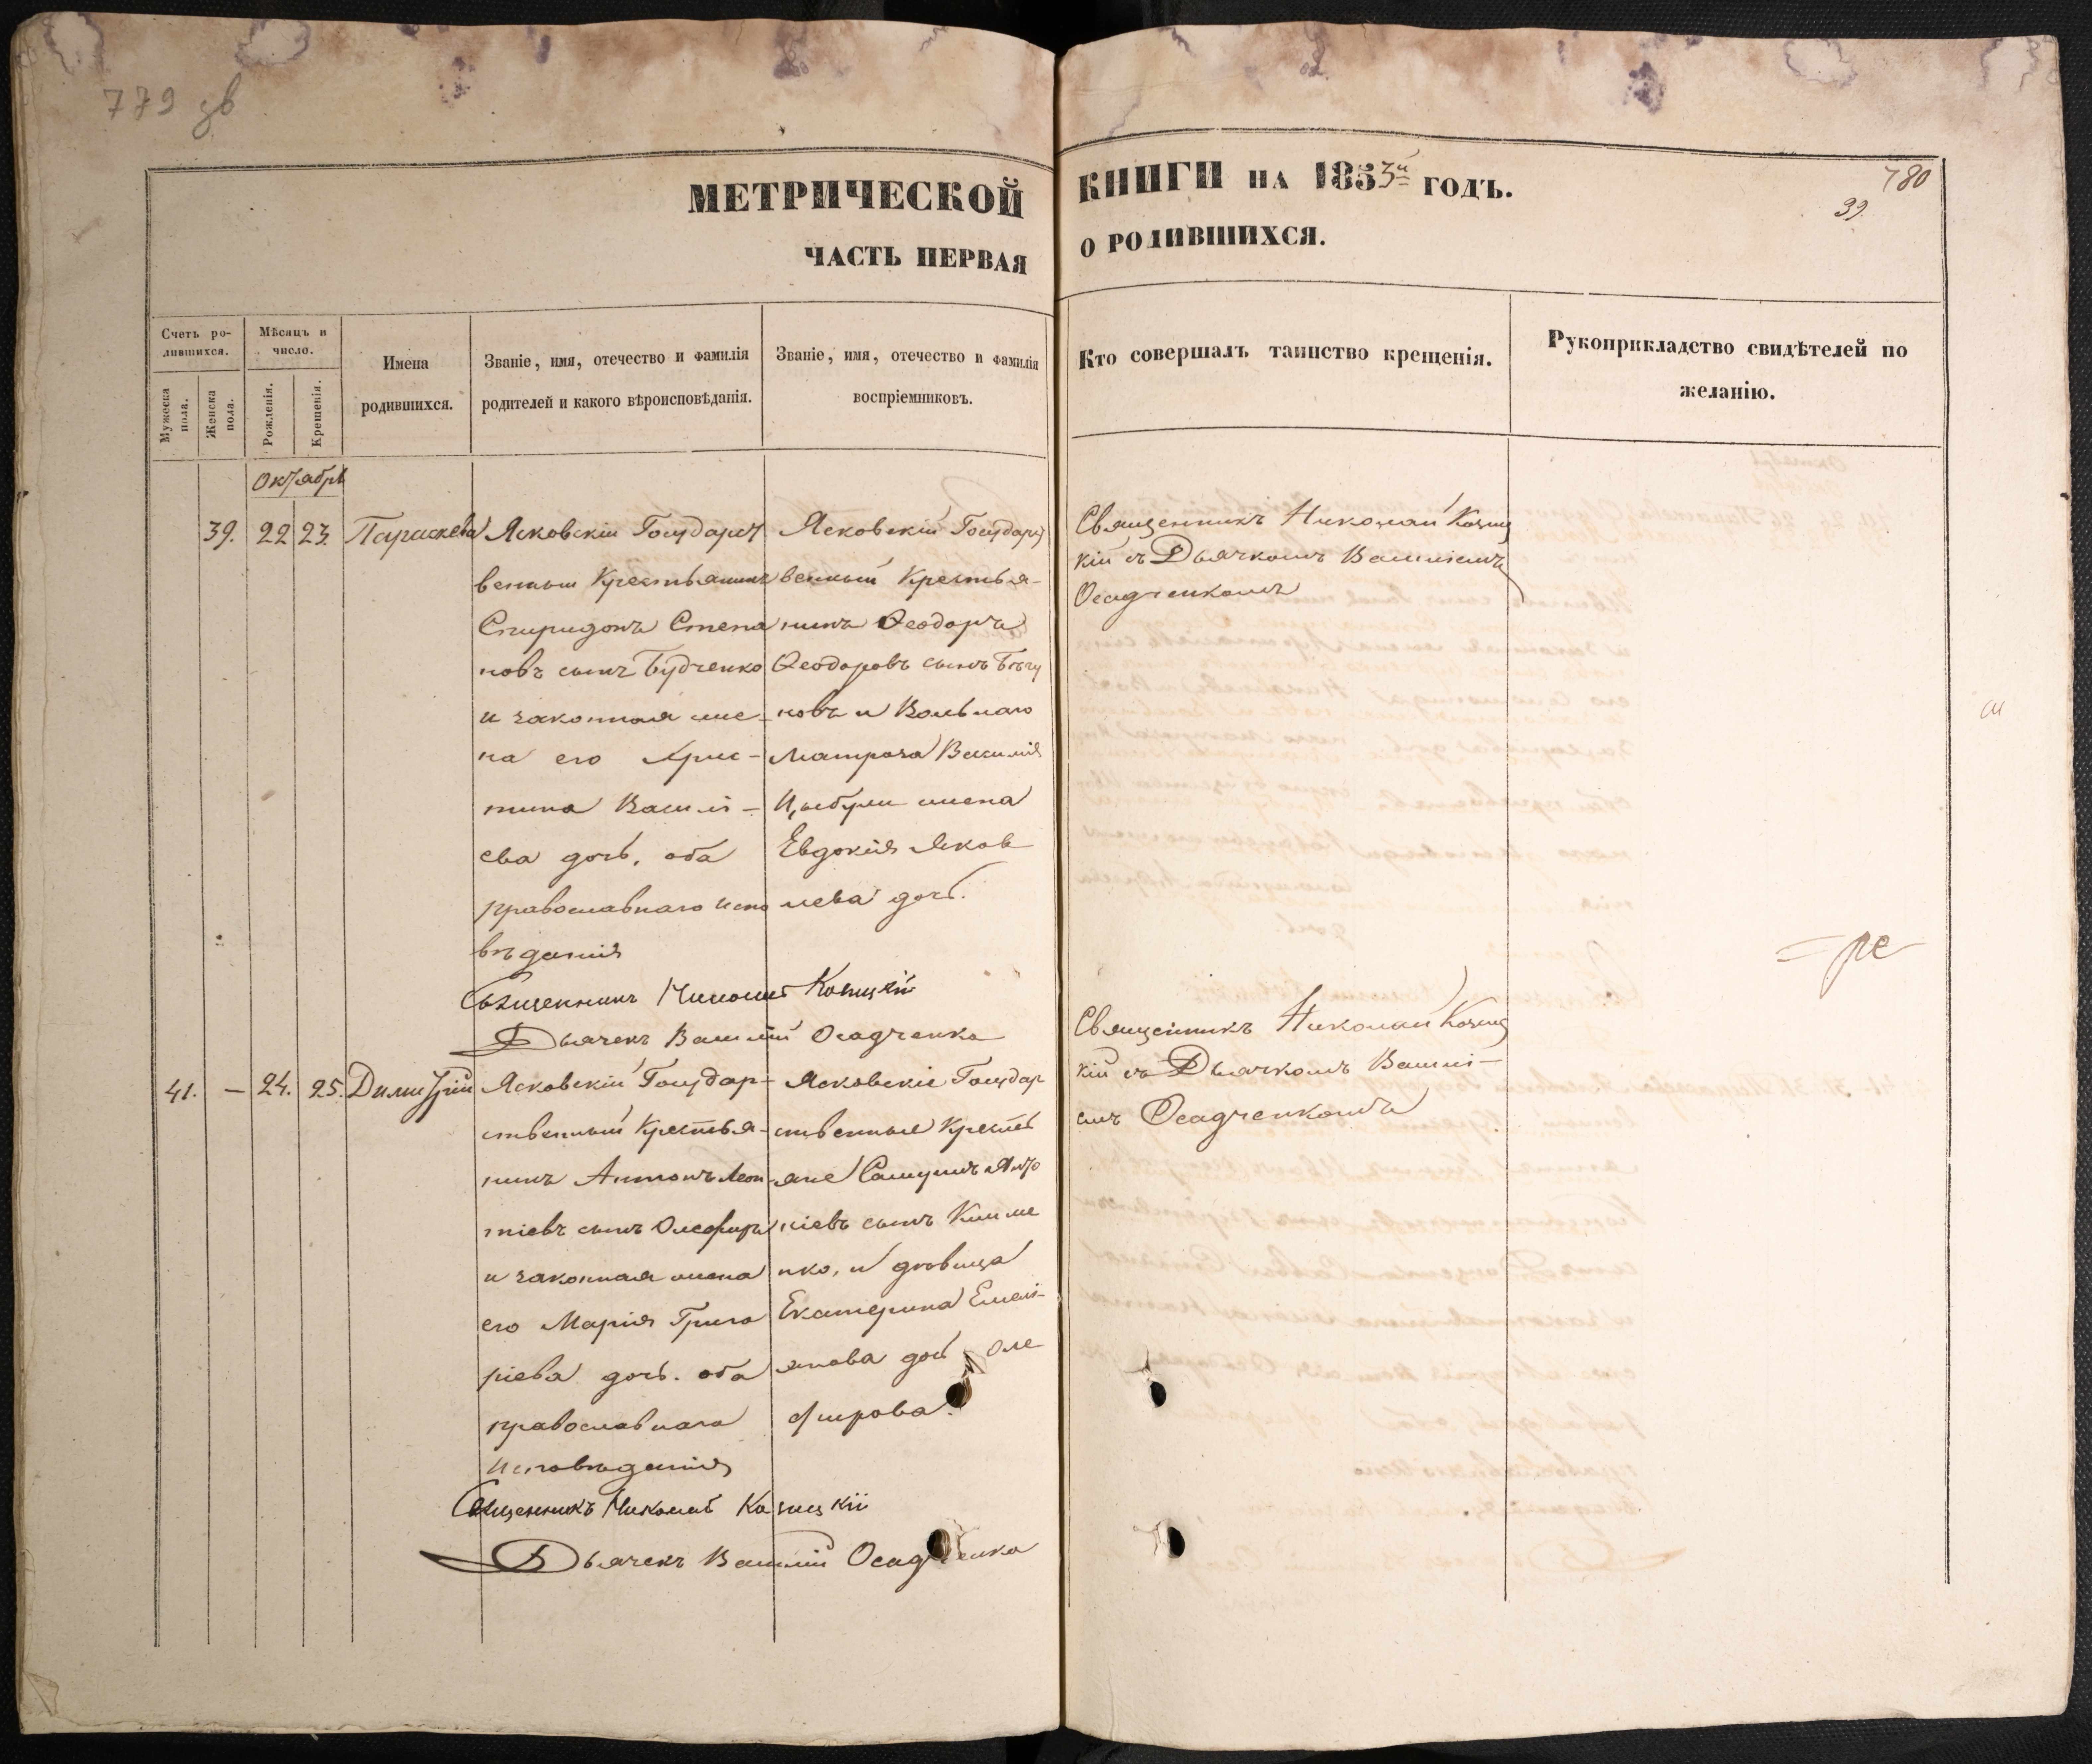 779 зв
780
39.
МЕТРИЧЕСКОЙ КНИГИ НА 1853й ГОДЪ.
ЧАСТЬ ПЕРВАЯ О РОДИВШИХСЯ.
Счетъ ро-
дившихся.
Мѣсяцъ и
число.
Мужеска
пола.
Женска
пола.
Рожденія.
Крещенія.
Имена
родившихся.
Званіе, имя, отечество и фамилія
родителей и какого вѣроисповѣданія.
Званіе, имя, отечество и фамилія
воспріемниковъ.
Кто совершалъ таинство крещенія.
Рукоприкладство свидѣтелей по
желанію.
Октябрь
39. 22 23. Параскева
Ясковскій Государст
венный Крестьянинъ
Спиридонъ Степа
новъ сынъ Будченко
и законная же-
на его Хрис-
тина Василі-
ева дочь, оба
православнаго испо
вѣданія
Ясковскій Государст
венный Крестья-
нинъ Ѳеодоръ
Ѳеодоровъ сынъ Бѣгу
новъ и Вольнаго
Матроза Василія
Цыбули жена
Евдокія Яков
лева дочь.
Священникъ Николай Козиц
кій съ Дьячкомъ Василіемъ
Осадченкомъ
Священникъ Николай Козицкій
Дьячекъ Василій Осадченко
41. — 24. 25. Димитрій
Ясковскій Государ-
ственный Крестья-
нинъ Антонъ Леон
тіевъ сынъ Олефиръ
и законная жена
его Марія Григо
ріева дочь. оба
православнаго
исповѣданія
Ясковскіе Государ
ственные Кресть
яне Самуилъ
ніевъ сынъ Климе
нко, и дѣвица
Екатерина Емелі-
янова дочь Оле
фирова.
Священникъ Николай Козиц
кій съ Дьячкомъ Василі-
емъ Осадченкомъ
Священникъ Николай Козицкій
Дьячекъ Василій Осадченко